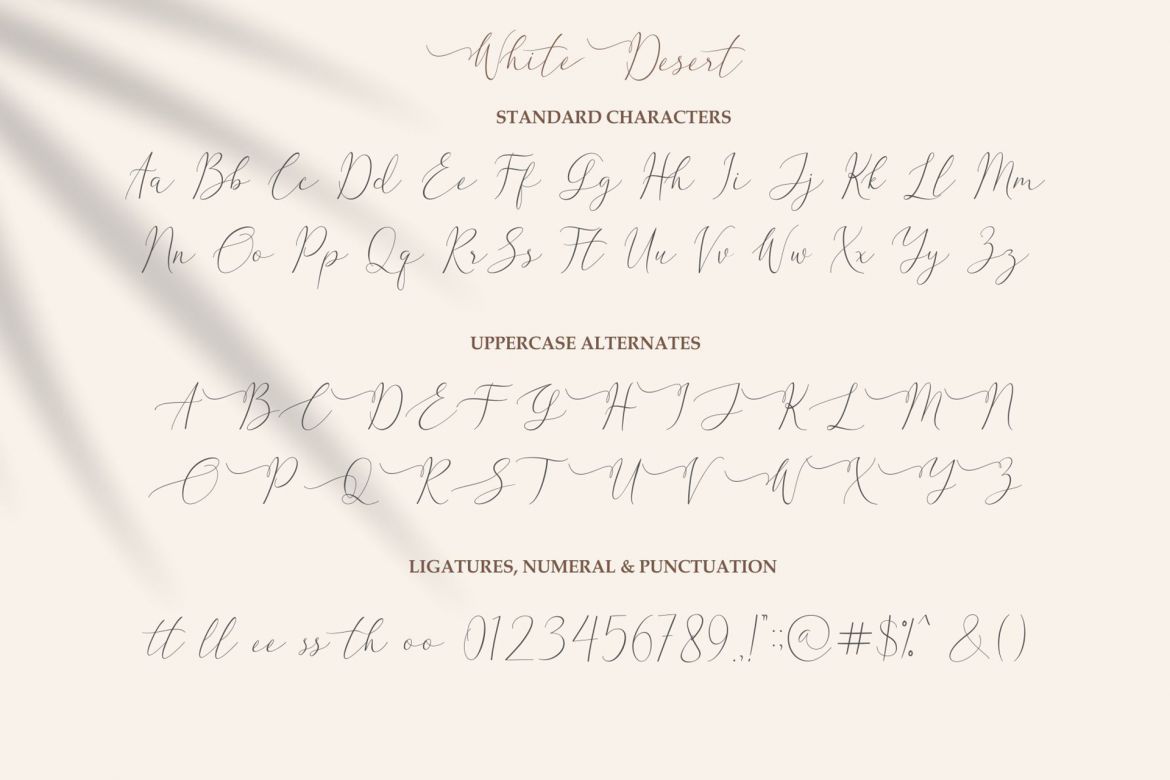 White Desert
STANDARD CHARACTERS
Aa Bb Cc Dd Ee Ff Gg Hh Ii Jj Kk Ll Mm
Nn Oo Pp Qq Rr Ss Tt Uu Vv Ww Xx Yy Zz
UPPERCASE ALTERNATES
A B C D E F G H I J K L M N
O P Q R S T U V W X Y Z
LIGATURES, NUMERAL & PUNCTUATION
tt ll ee ss th oo 0123456789.,!":;@#$%^ &()